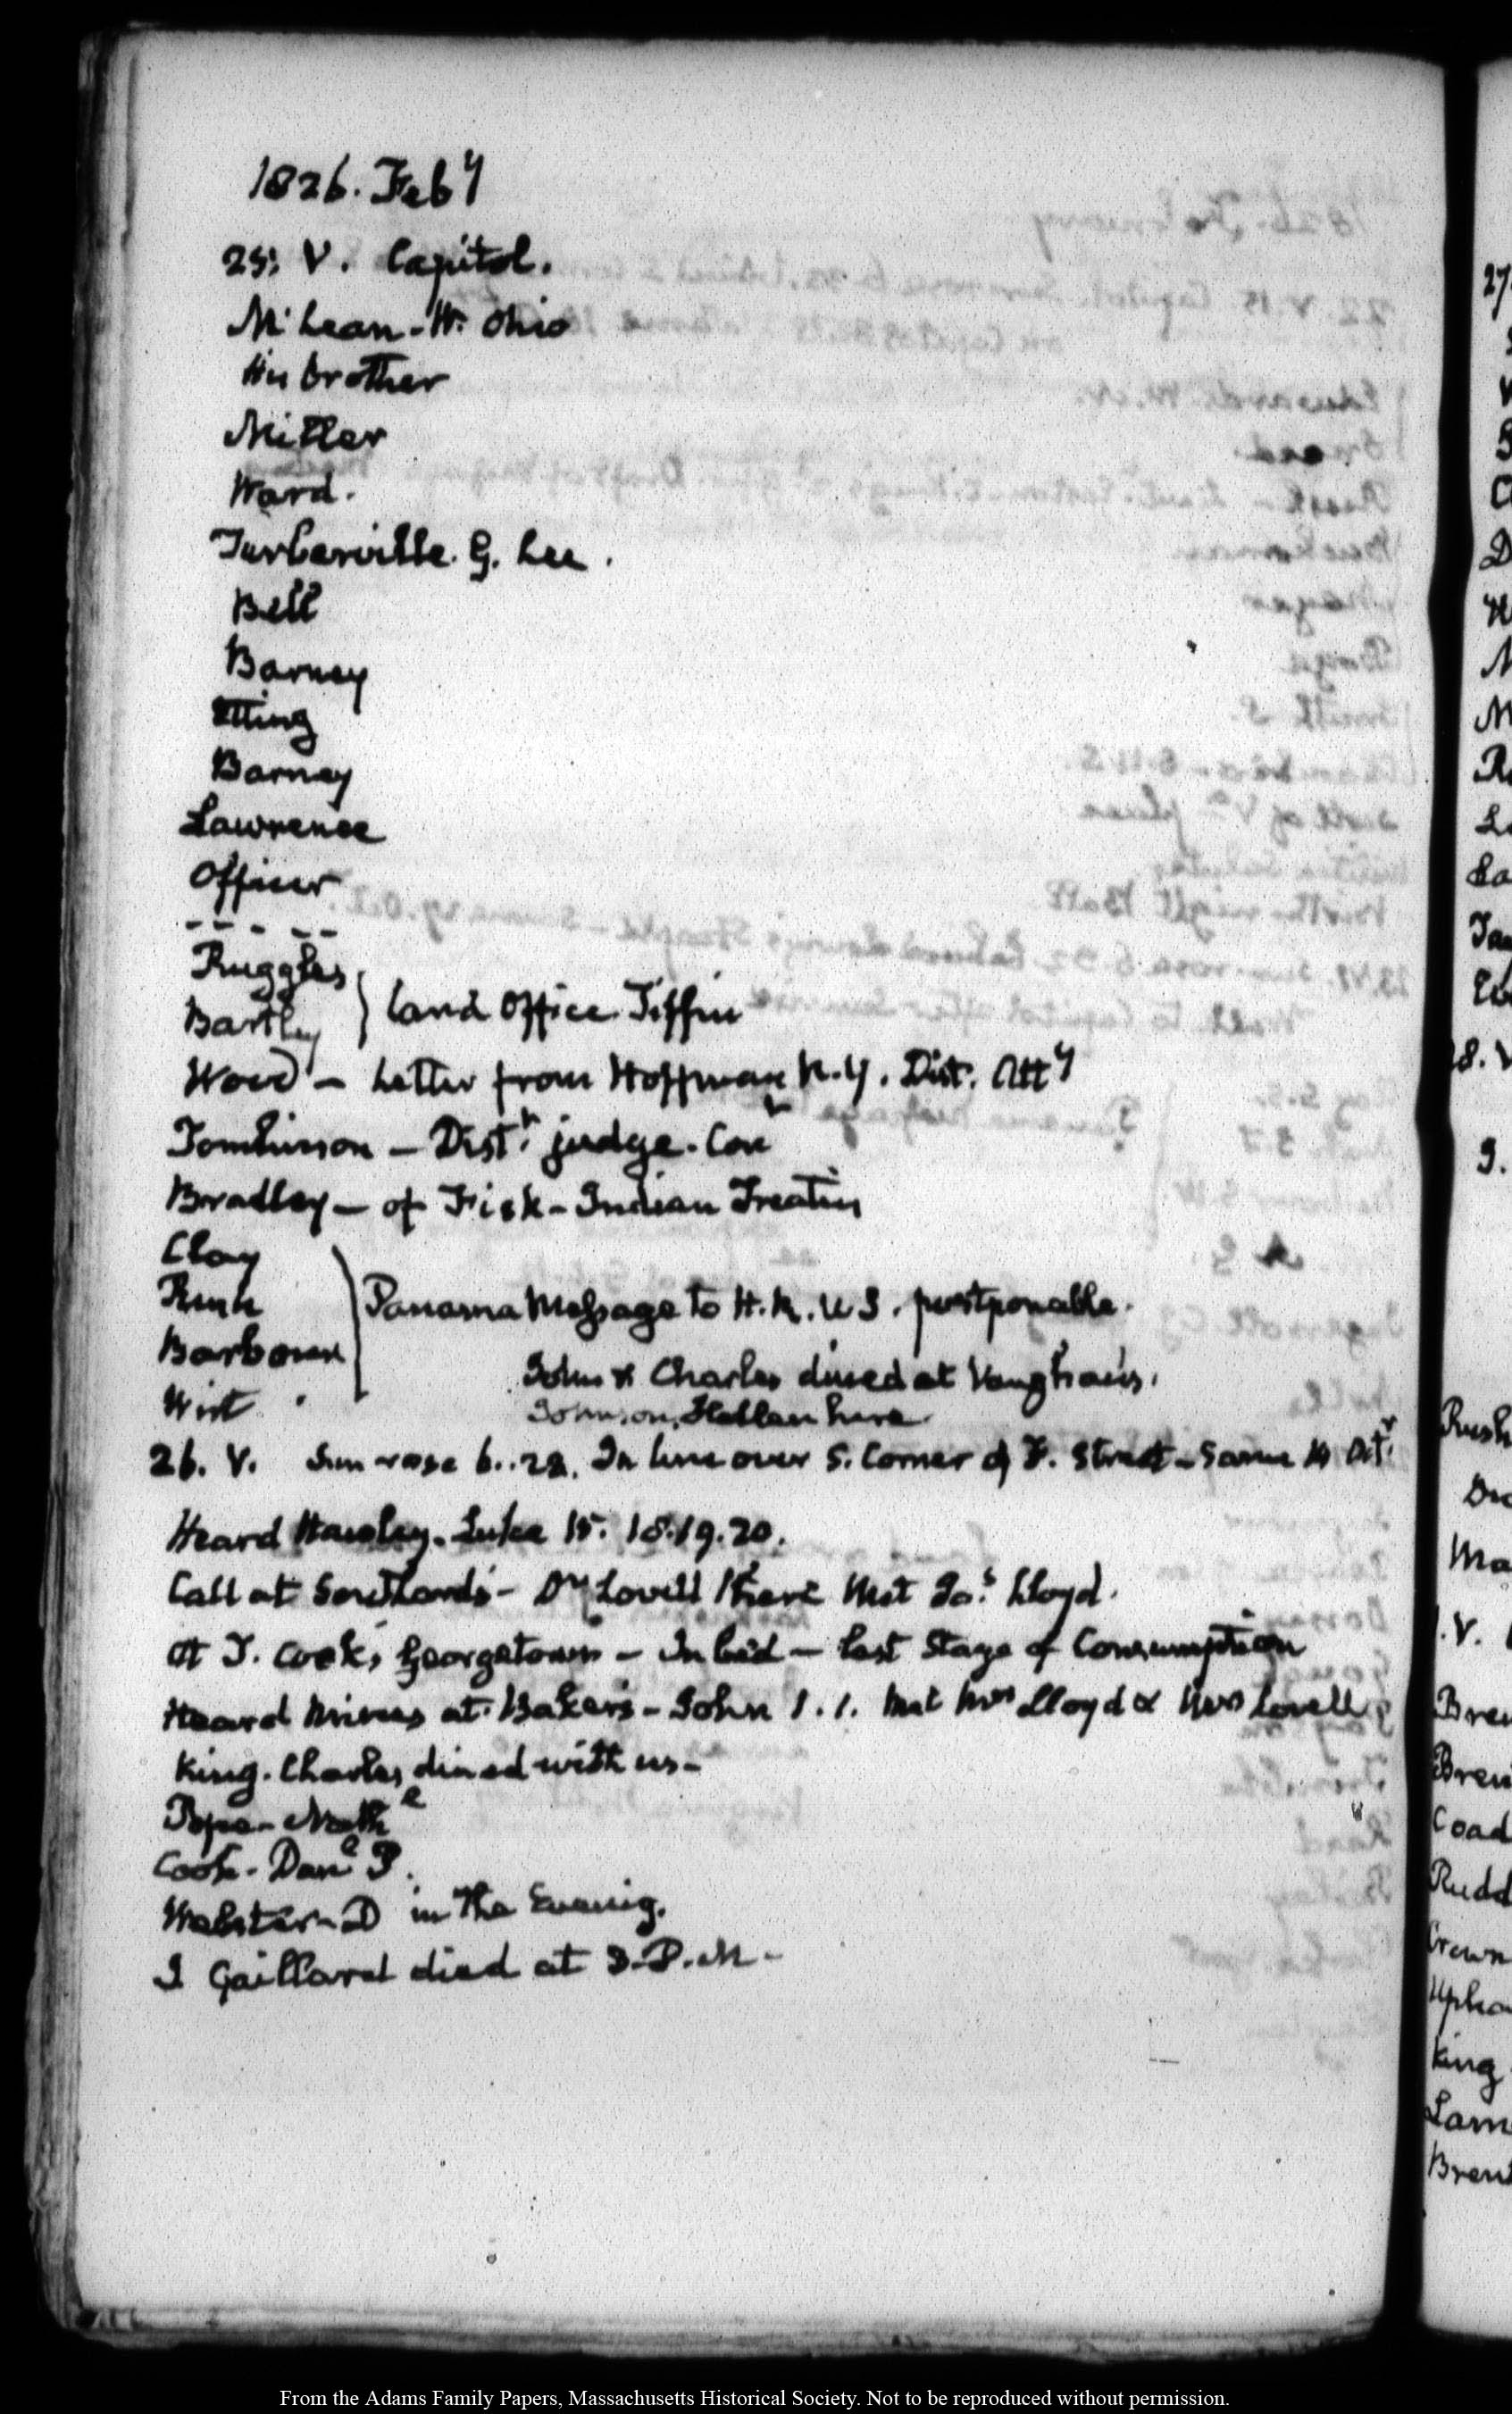 1826. Feby
25. V. Capitol.
McLean - W. Ohio
His brother
Miller
Ward.
Turberville. G. Lee.
Bell
Barney
Etting
Barney
Lawrence
Officer
- - - - -
Ruggles
Bartley } Land Office Tiffin
Wood - Letter from Hoffman N.Y. Dist. Atty
Tomlinson - Distt judge. Cont
Bradley - of Fisk - Indian Treaties
Clay
Rush } Panama Message to H.R. U S. postponable.
Barbour
John & Charles dined at Vaughan's.
Wirt
Johnson, Hellen here
26. V. Sun rose 6..28. In line over S. Corner of F. Street - Same 14 Octr
Heard Hawley. Luke 15. 18.19.20.
Call at Southard's - Dr Lovell there Met Jas Lloyd.
At J. Cook's Georgetown - In bed - last Stage of Consumption
Heard at Baker's - John 1.1. Met Mrs Lloyd & Mrs Lovell
King. Charles dined with us -
Pope - Nathl
Cook - Danl P.
Webster - D in the Evening.
J Gaillard died at 3. P.M -
From the Adams Family Papers, Massachusetts Historical Society. Not to be reproduced without permission.